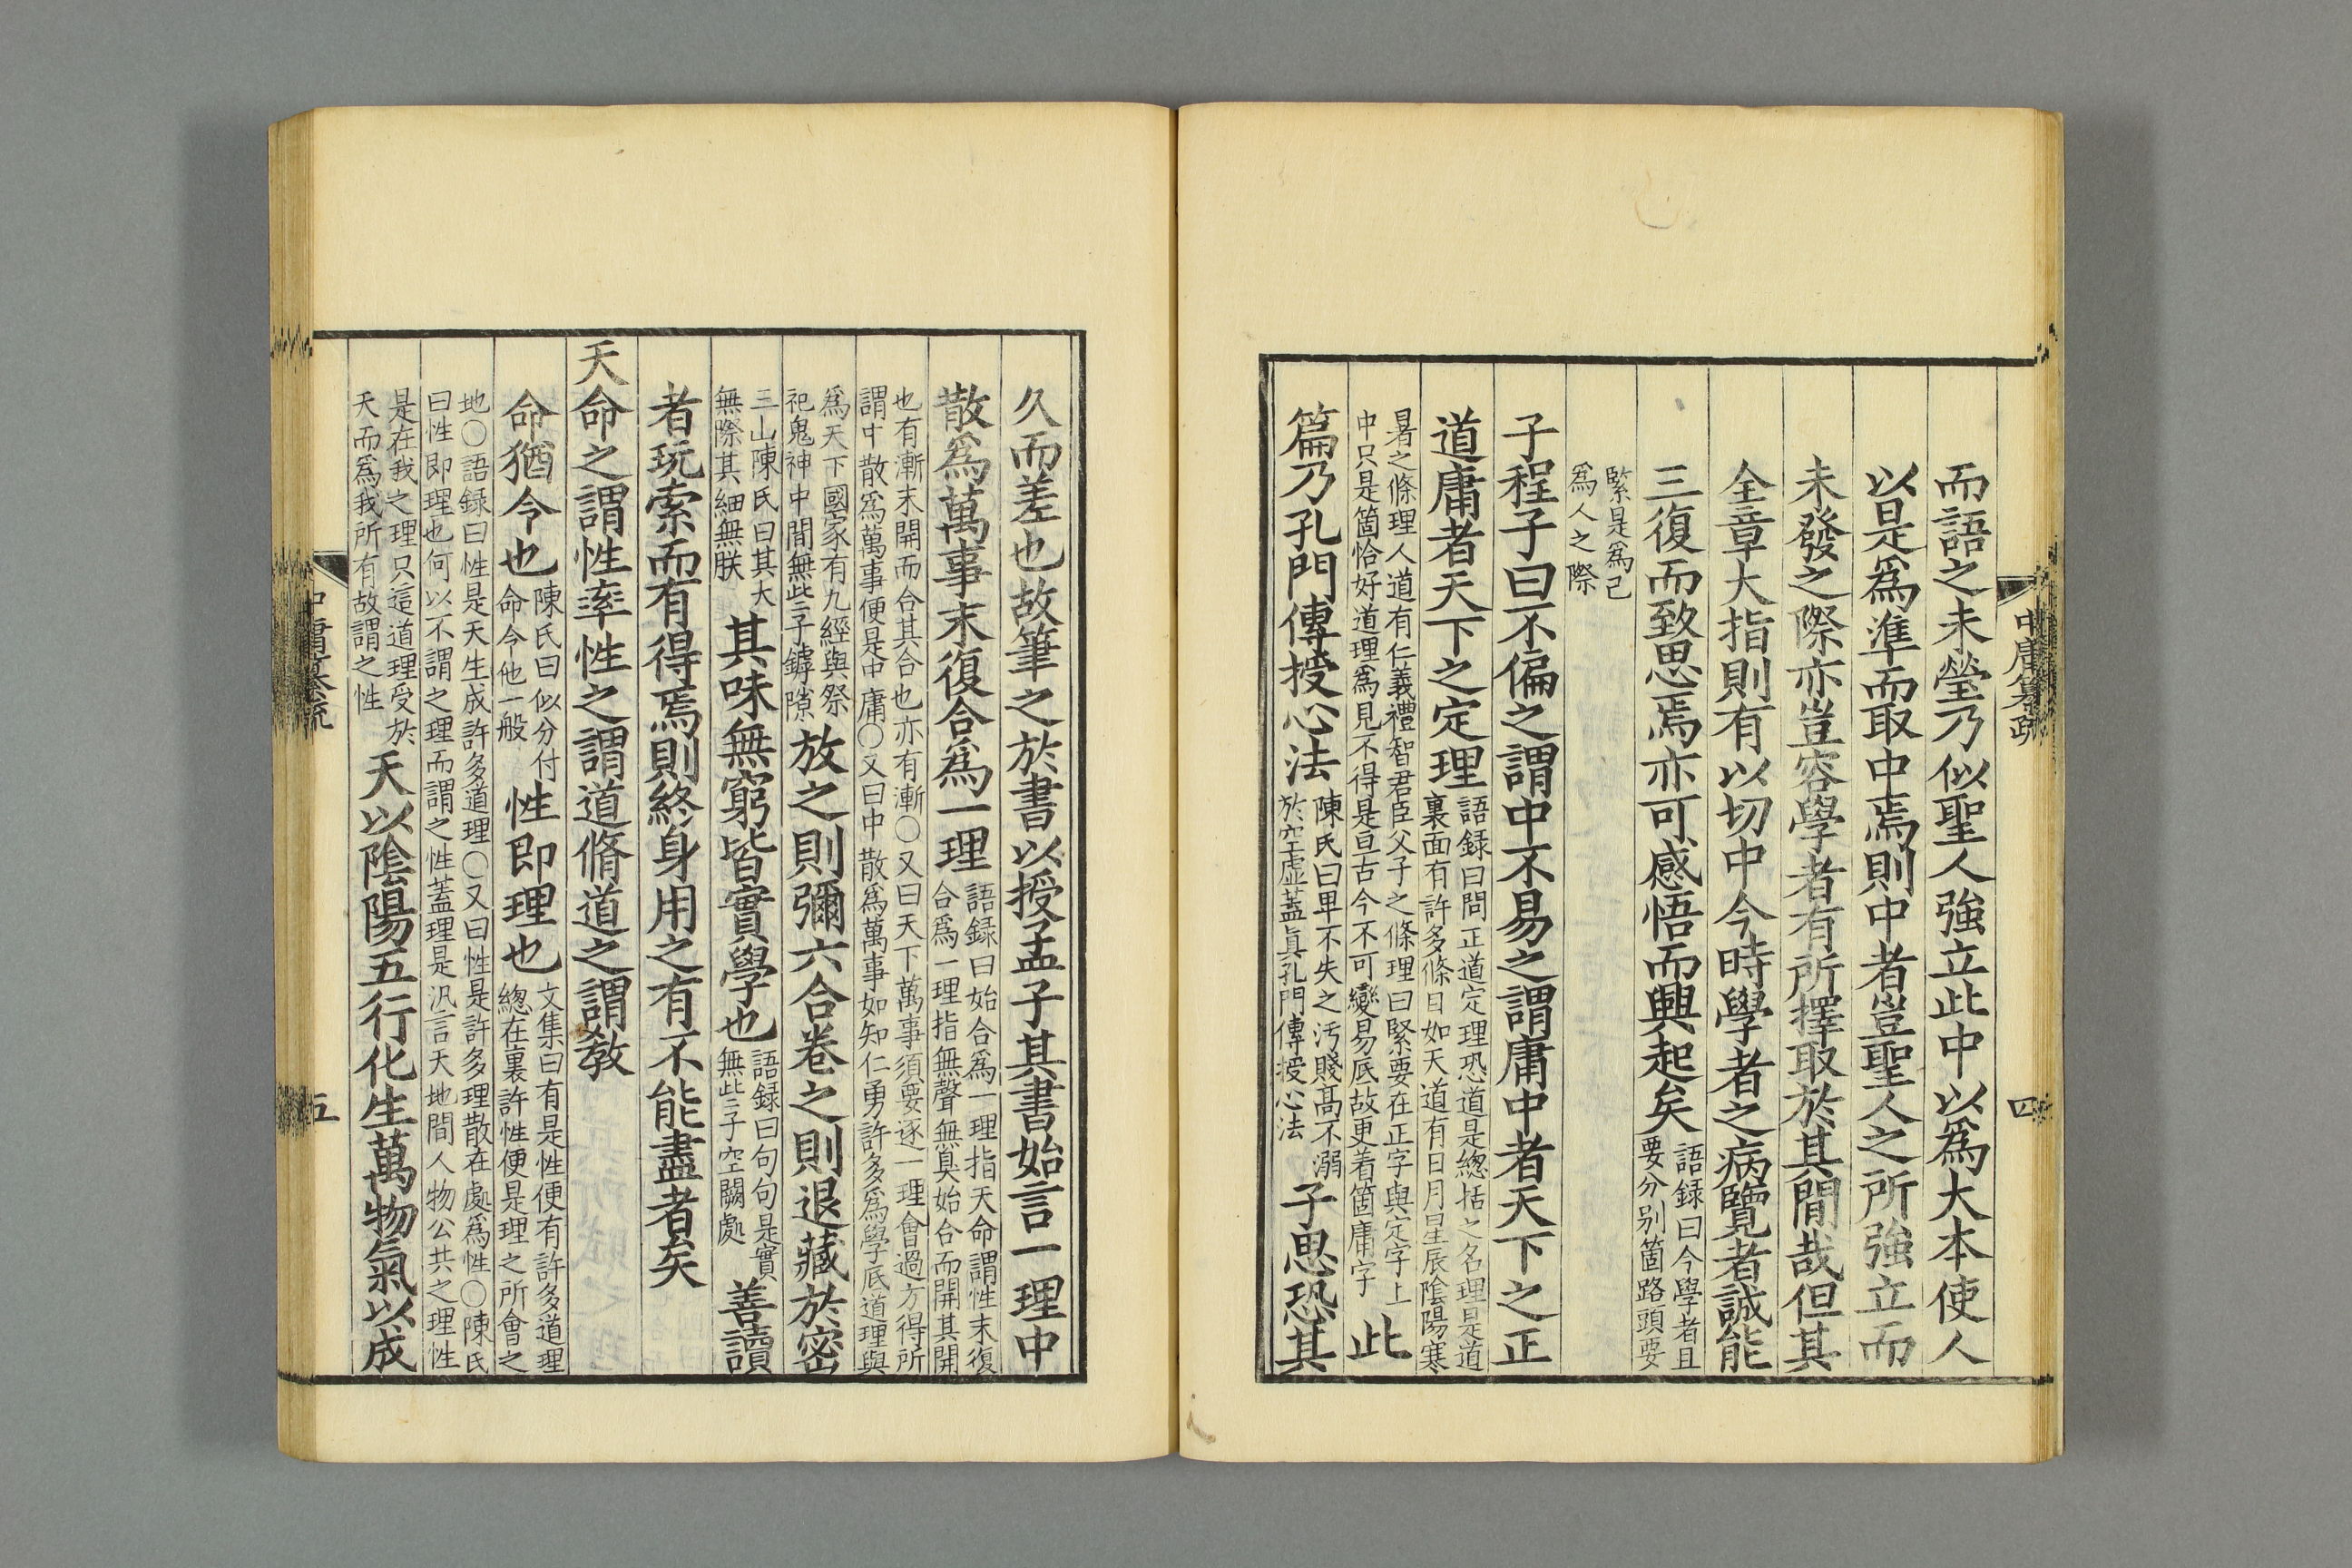 中庸纂疏
四
而語之未瑩乃似聖人強立此中以爲大本使人
以是爲準而取中焉則中者豈聖人之所強立而
未發之際亦豈容學者有所擇取於其間哉但其
全章大指則有以切中今時學者之病覽者誠能
三復而致思焉亦可感悟而興起矣
語録曰今學者且
要分别箇路頭要
緊是爲己
爲人之際
子程子曰不偏之謂中不易之謂庸中者天下之正
道庸者天下之定理
語録曰問正道定理恐道是緫括之名理是道
裏面有許多條目如天道有日月星辰陰陽寒
暑之條理人道有仁義禮智君臣父子之條理曰緊要在正字與定字上
中只是箇恰好道理爲見不得是亘古今不可變易底故更着箇庸字
此
篇乃孔門傳授心法
陳氏曰卑不失之汚賤髙不溺
於空虚蓋眞孔門傳授心法
子思恐其
久而差也故筆之於書以授孟子其書始言一理中
散爲萬事末復合爲一理
語録曰始合爲一理指天命謂性末復
合爲一理指無聲無臭始合而開其開
也有漸末開而合其合也亦有漸○又曰天下萬事須要逐一理會過方得所
謂中散爲萬事便是中庸○又曰中散爲萬事如知仁勇許多爲學底道理與
爲天下國家有九經與祭
祀鬼神中間無些子罅隙
放之則彌六合卷之則退藏於密
三山陳氏曰其大
無際其細無朕
其味無窮皆實學也
語録曰句句是實
無些子空闕處
善讀
者玩索而有得焉則終身用之有不能盡者矣
天命之謂性率性之謂道脩道之謂敎
命猶令也
陳氏曰似分付
命令他一般
性即理也
文集曰有是性便有許多道理
緫在裏許性便是理之所會之
地○語録曰性是天生成許多道理○又曰性是許多理散在處爲性○陳氏
曰性即理也何以不謂之理而謂之性蓋理是汎言天地間人物公共之理性
是在我之理只這道理受於
天而爲我所有故謂之性
天以陰陽五行化生萬物氣以成
五